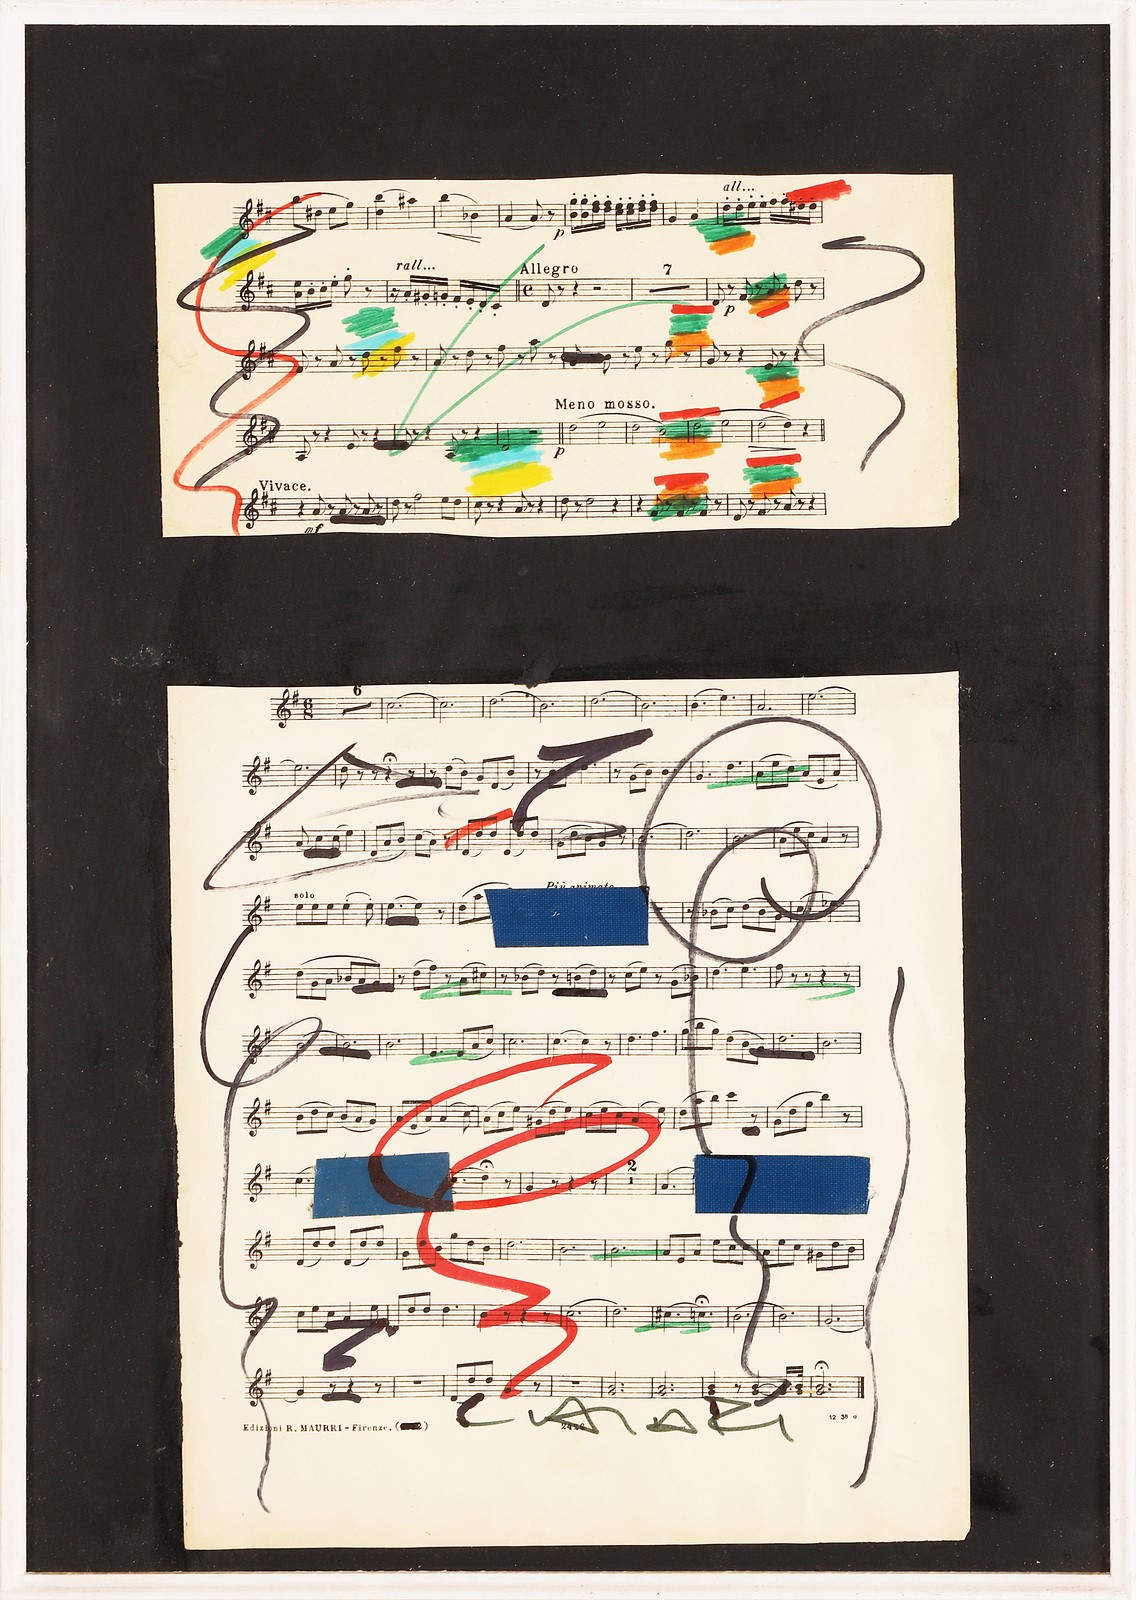 all...
p
rall...
Allegro
7
p
Meno mosso.
p
Vivace.
mf
6
6
8
solo
Più animato
2
1
CHIARI
Edizioni R. MAURRI - Firenze. (
2426
12 38 e